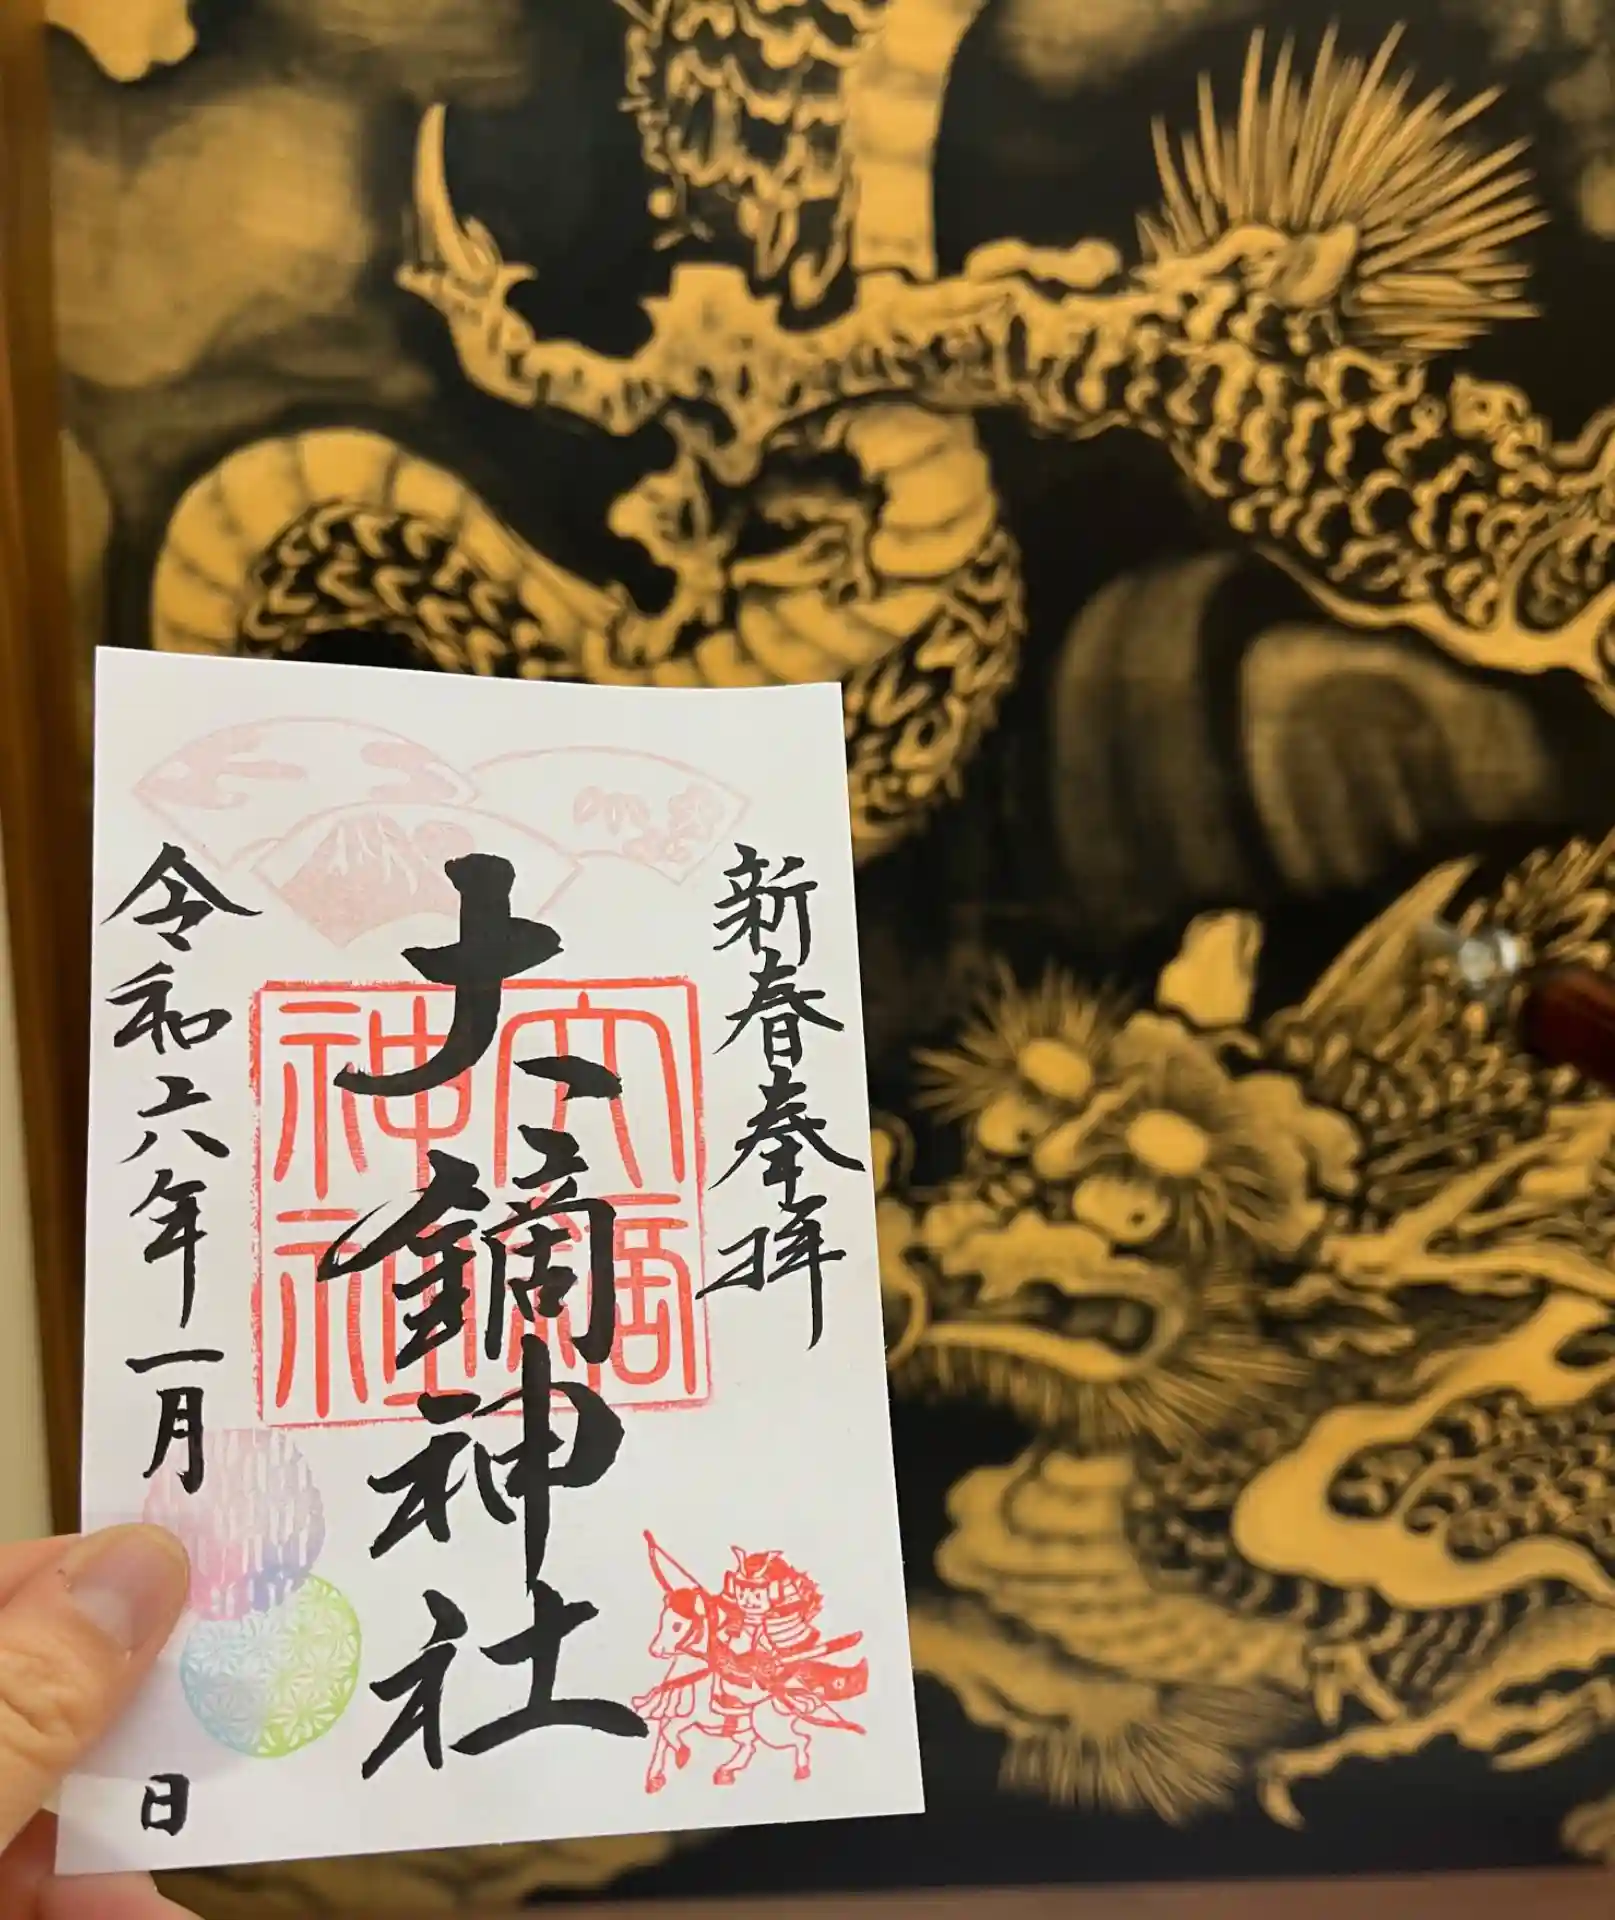 新春奉拝
大鏑神社
大鏑神社
令和六年一月
日